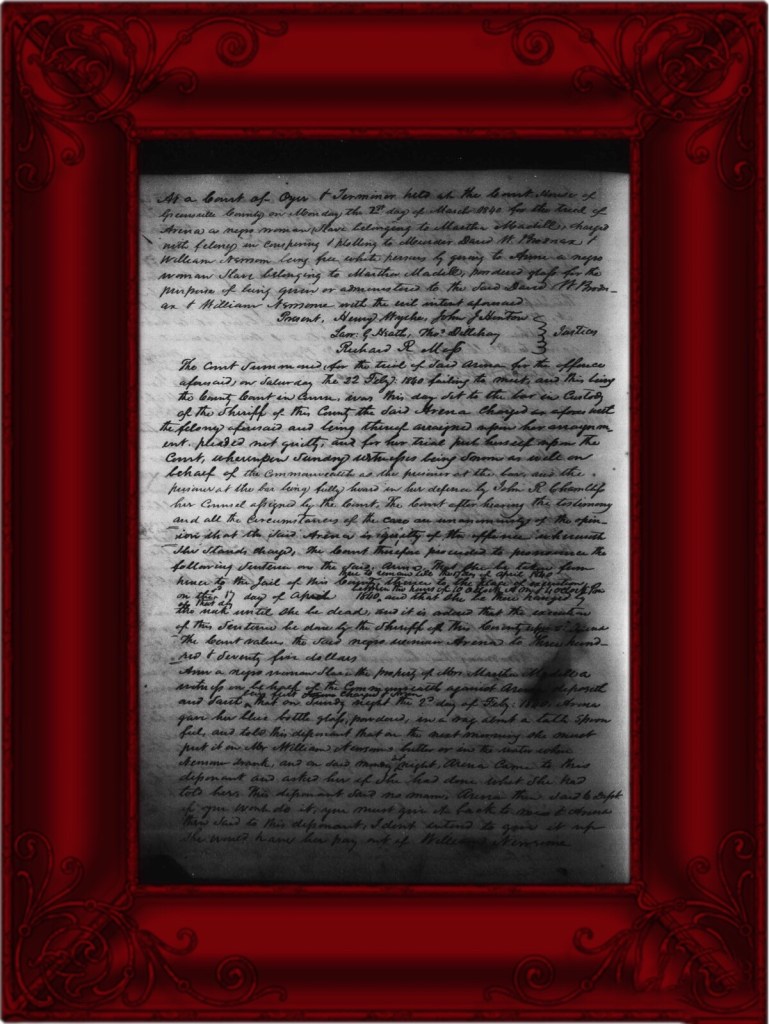 At a Court of Oyer & Terminer held at the Court House of
Greensville County on Monday the 2nd day of March 1840 for the trial of
Arena a negro woman Slave belonging to Martha Madell, charged
with felony in conspiring & plotting to Murder David W. Brodnax &
William Newsom being free white persons by giving to Anne a negro
woman Slave belonging to Martha Madell, powdered glass for the
purpose of being given or administered to the Said David W Brodn-
ax & William Newsome with the evil intent aforesaid
Present, Henry Wyche, John J Hinton
G Heath, Thos. Dillehay } Justices
Richard R. Moss
The Court Summoned, for the trial of Said Arena for the offence
aforesaid, on Saturday the 22 Feby. 1840 failing to meet, and this being
the County Court in Course, was this day Set to the bar in Custody
of the Sheriff of this County the Said Arena Charged as afores with
the felony aforesaid and being thereof arraigned upon her arraignm
ent pleaded not guilty, and for her trial put himself upon the
Court, whereupon Sundry witnesses being Sworn as well on
behalf of the Commonwealth as the prisoner at the bar, and the
prisoner at the bar being fully heard in her defence by John R
her Counsel assigned by the Court, the Court after hearing the testimony
and all the Circumstances of the case are unanimously of the opin-
ion that the Said Arena is guilty of the offence wherewith
She Stands charged, the Court therefore proceeded to pronounce the
following Sentence on the Said Arena, That She be taken from
hence to the Jail of this County there to remain till the 17 day of April 1840 thence to the place of execution
on the 17 day of April 1840, between the hours of 10 oClock A M & 4 oClock P m and that She be there hanged by
the neck until She be dead, and it is ordered that the execution
of this Sentence be done by the Sheriff of this County
The Court values the Said negro woman Arena to three hund-
red & Seventy five dollars
Ann a negro woman Slave the property of Mrs Martha Madell a
witness on behalf of the Commonwealth against Arena, deposeth
and Saith being first Sworn Charged & that on Sunday night the 2d day of Feby: 1840, Arena
gave her blue bottle glass, powdered, in a rag about a table Spoon
ful, and told this deponant that on the next morning she must
put it in Mr William Newsoms butter or in the water which
Newsom drank, and on said monday night, Arena Came to this
deponant and asked her if She had done what She had
told her, this deponant Said no mam, Arena then Said to Depot
if you wont do it, you must give it back to me & Arena
then Said to this deponant, I dont intend to give it up
She would have her pay out of William Newsome